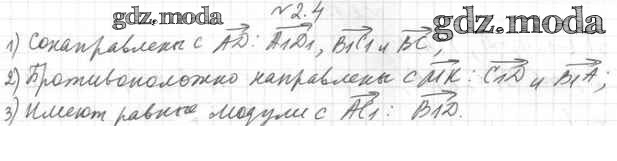 №2.4
gdz.moda
gdz.moda
1) Сонаправлены с AD: A1D1, B1C1 и BC;
2) Противоположно направлены с MK: C1D и B1A;
3) Имеют равные модули с AC1: B1D.